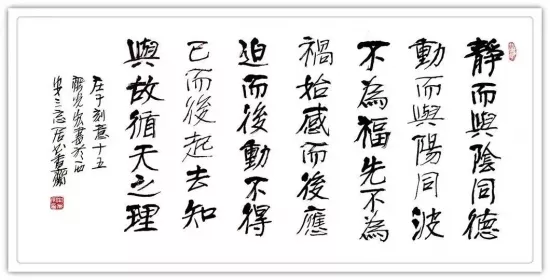 靜而與陰同德
動而與陽同波
不為福先不為
禍始感而後應
迫而後動不得
已而後起去知
與故循天之理
庄子刻意十五